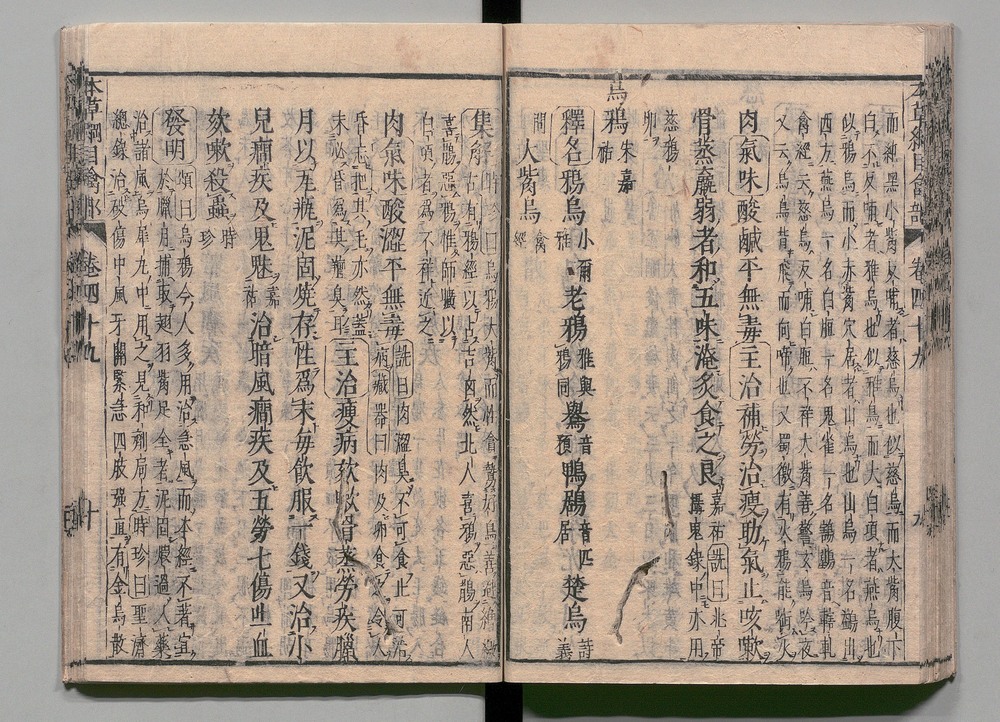 本草綱目禽部 卷四十九 九
而純黑小觜反哺者慈烏也似慈烏而大觜腹下
白不反哺者雅烏也似雅烏而大白項者燕烏也
似鴉烏而小赤觜穴居者山烏也山烏一名鷁出
西方燕烏一名白脰一名鬼雀一名鶷鶡音轄軋
禽經云慈烏反哺白脰不祥大觜善警玄烏吟夜
又云烏鳥背飛而向啼也又蜀徼有火鴉能銜火
肉氣味酸鹹平無毒主治補勞治瘦助氣止咳嗽
骨蒸羸弱者和五味淹炙食之良嘉祐詵曰北帝
攝鬼錄中亦用
慈鴉
卵
烏鴉宋嘉
祐
釋名鴉烏小爾
雅老鴉雅與
鴉同鸒音
預鵯鶋音匹
居楚烏詩
義
問大觜烏禽
經
集解時珍曰烏鴉大觜而性貪鷙好鳥善避繒繳
古有鴉經以占吉凶然北人喜鴉惡鵲南人
喜鵲惡鴉惟師曠以
白項者爲不祥近之
肉氣味酸澀平無毒詵曰肉澀臭不可食止可治
病藏器曰肉及卵食之令人
昏忘把其毛亦然蓋
未必昏爲其羶臭耳主治瘦病欬嗽骨蒸勞疾臘
月以瓦瓶泥固燒存性爲末每飲服一錢又治小
兒癇疾及鬼魅嘉
祐治暗風癇疾及五勞七傷吐血
欬嗽殺蟲時
珍
發明頌曰烏鴉今人多用治急風而本經不著宜
於臘月捕取翅羽觜足全者泥固煆過入藥
治諸風烏犀丸中用之見和劑局方時珍曰聖濟
總錄治破傷中風牙關緊急四肢強直有金烏散
本草綱目禽部 卷四十九 十